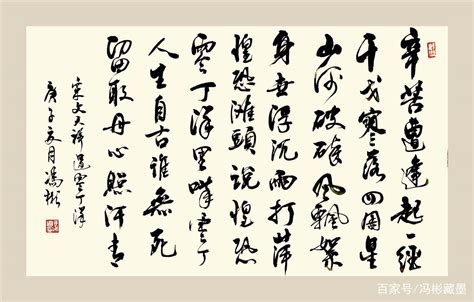 辛苦遭逢起一經
干戈寥落四周星
山河破碎風飄絮
身世浮沉雨打萍
惶恐灘頭說惶恐
零丁洋里嘆零丁
人生自古誰無死
留取丹心照汗青
宋文天祥過零丁洋
庚子夏月馮彬
百家号/冯彬藏墨